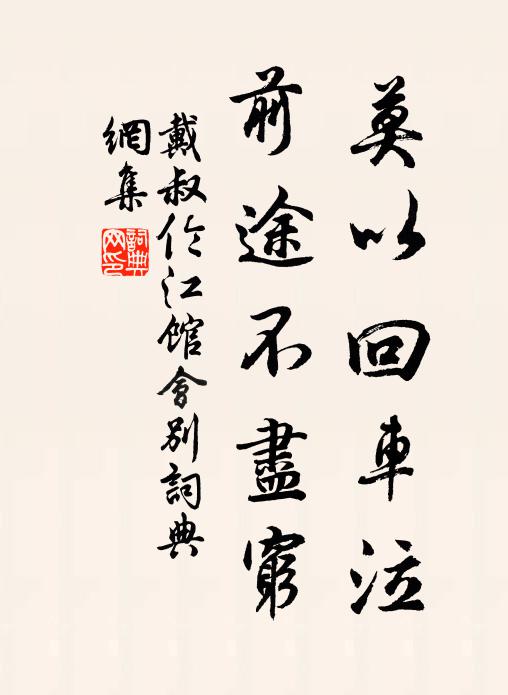 莫以回車泣
前途不盡窮
戴叔伦江館會別詞典
網集
詞典網印